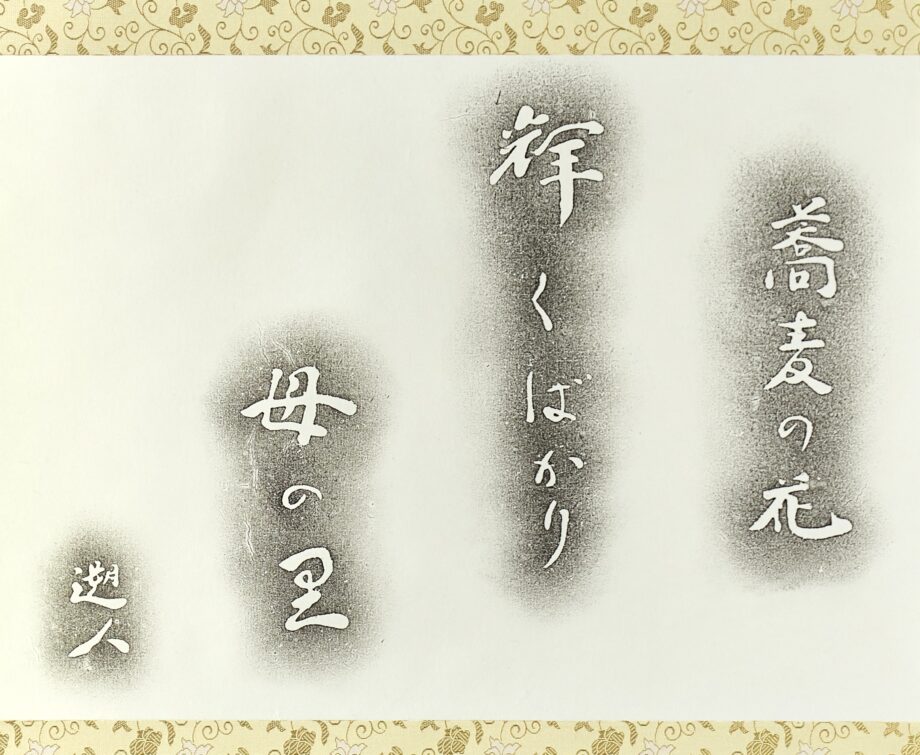 蕎麦の花
輝くばかり
母の里
遡人